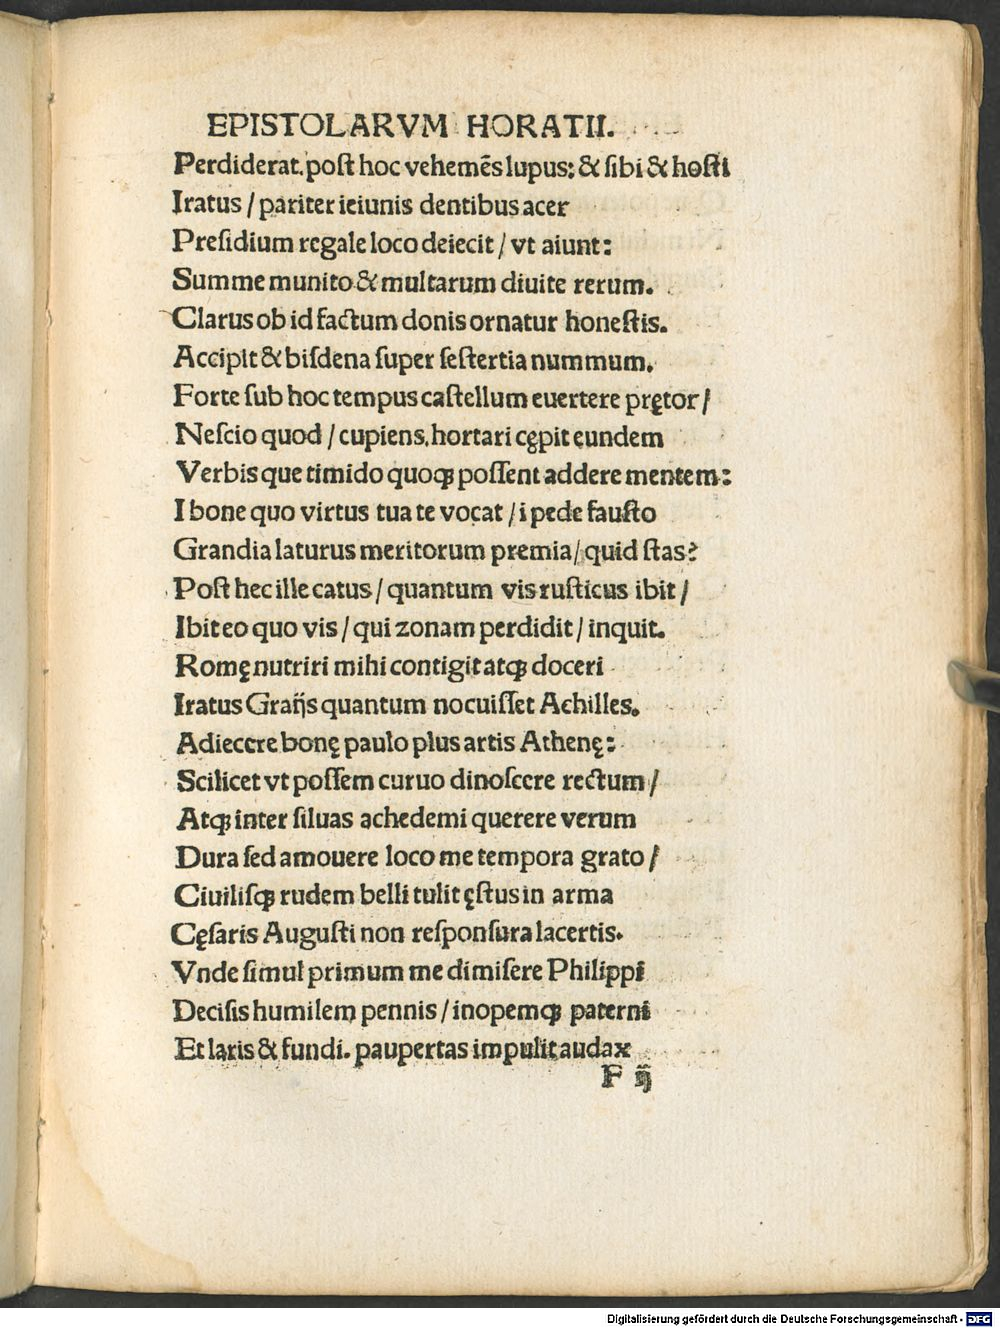 EPISTOLARVM HORATII.
Perdiderat. poſt hoc vehemēs lupus: & ſibi & hoſti
Iratus / pariter ieiunis dentibus acer
Preſidium regale loco deiecit / vt aiunt:
Summe munito & multarum diuite rerum.
Clarus ob id factum donis ornatur honeſtis.
Accipit & biſdena ſuper ſeſtertia nummum.
Forte ſub hoc tempus caſtellum euertere prętor /
Neſcio quod / cupiens. hortari cępit eundem
Verbis que timido quoqꝫ poſſent addere mentem:
I bone quo virtus tua te vocat / i pede fauſto
Grandia laturus meritorum premia / quid ſtas?
Poſt hec ille catus / quantum vis ruſticus ibit /
Ibit eo quo vis / qui zonam perdidit / inquit.
Romę nutriri mihi contigit atqꝫ doceri
Iratus Graĳs quantum nocuiſſet Achilles.
Adiecere bonę paulo plus artis Athenę:
Scilicet vt poſſem curuo dinoſcere rectum /
Atqꝫ inter ſiluas achedemi querere verum
Dura ſed amouere loco me tempora grato /
Ciuiliſqꝫ rudem belli tulit ęſtus in arma
Cęſaris Auguſti non reſponſura lacertis.
Vnde ſimul primum me dimiſere Philippi
Deciſis humilem pennis / inopemqꝫ paterni
Et laris & fundi. paupertas impulit audax
F ĳ
Digitalisierung gefördert durch die Deutsche Forschungsgemeinschaft - DFG